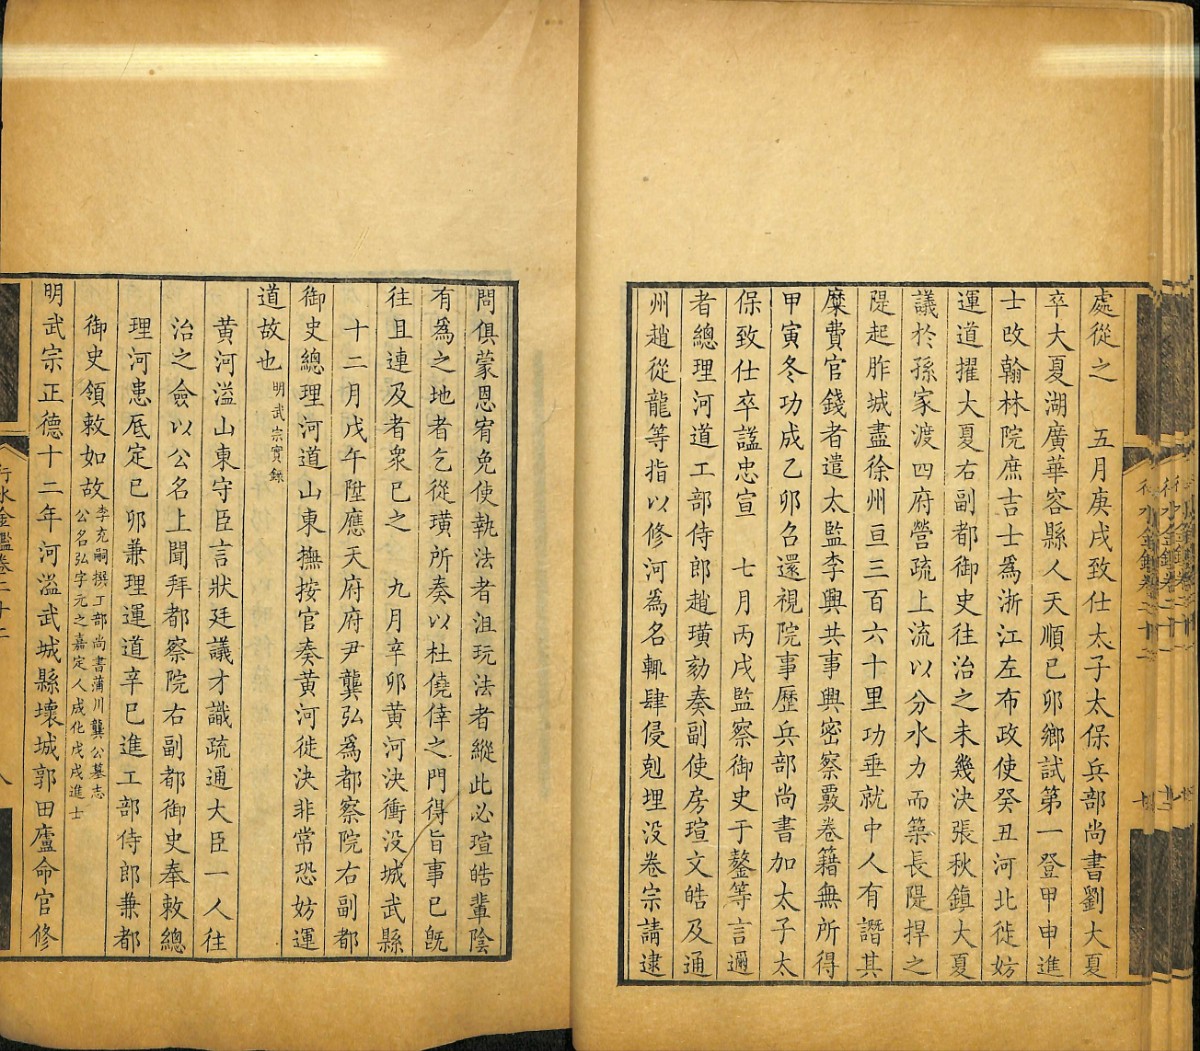 處從之　五月庚戌致仕太子太保兵部尚書劉大夏
卒大夏湖廣華容縣人天順己卯鄉試第一登甲申進
士改翰林院庶吉士爲浙江左布政使癸丑河北徙妨
運道擢大夏右副都御史往治之未幾決張秋鎮大夏
議於孫家渡四府營疏上流以分水力而築長隄捍之
隄起胙城盡徐州亘三百六十里功垂就中人有譖其
糜費官錢者遣太監李興共事興密察覈卷籍無所得
甲寅冬功成乙卯召還視院事歷兵部尚書加太子太
保致仕卒謚忠宣　七月丙戌監察御史于鏊等言邇
者總理河道工部侍郎趙璜劾奏副使房瑄文皓及通
州趙從龍等指以修河為名輒肆侵剋埋没卷宗請逮
問俱蒙恩宥免使執法者沮玩法者縱此必瑄皓輩陰
有爲之地者乞從璜所奏以杜僥倖之門得旨事已旣
往且連及者衆已之　九月辛卯黄河決衝没城武縣
十二月戊午陞應天府府尹龔弘爲都察院右副都
御史總理河道山東撫按官奏黄河徙決非常恐妨運
道故也明武宗實錄
黄河溢山東守臣言狀廷議才識疏通大臣一人往
治之僉以公名上聞拜都察院右副都御史奉敕總
理河患底定己卯兼理運道辛巳進工部侍郎兼都
御史領敕如故李充嗣撰工部尚書蒲川龔公墓志
公名弘字元之嘉定人成化戊戌進士
明武宗正德十二年河溢武城縣壞城郭田廬命官修
行水金鑑卷二十二
八